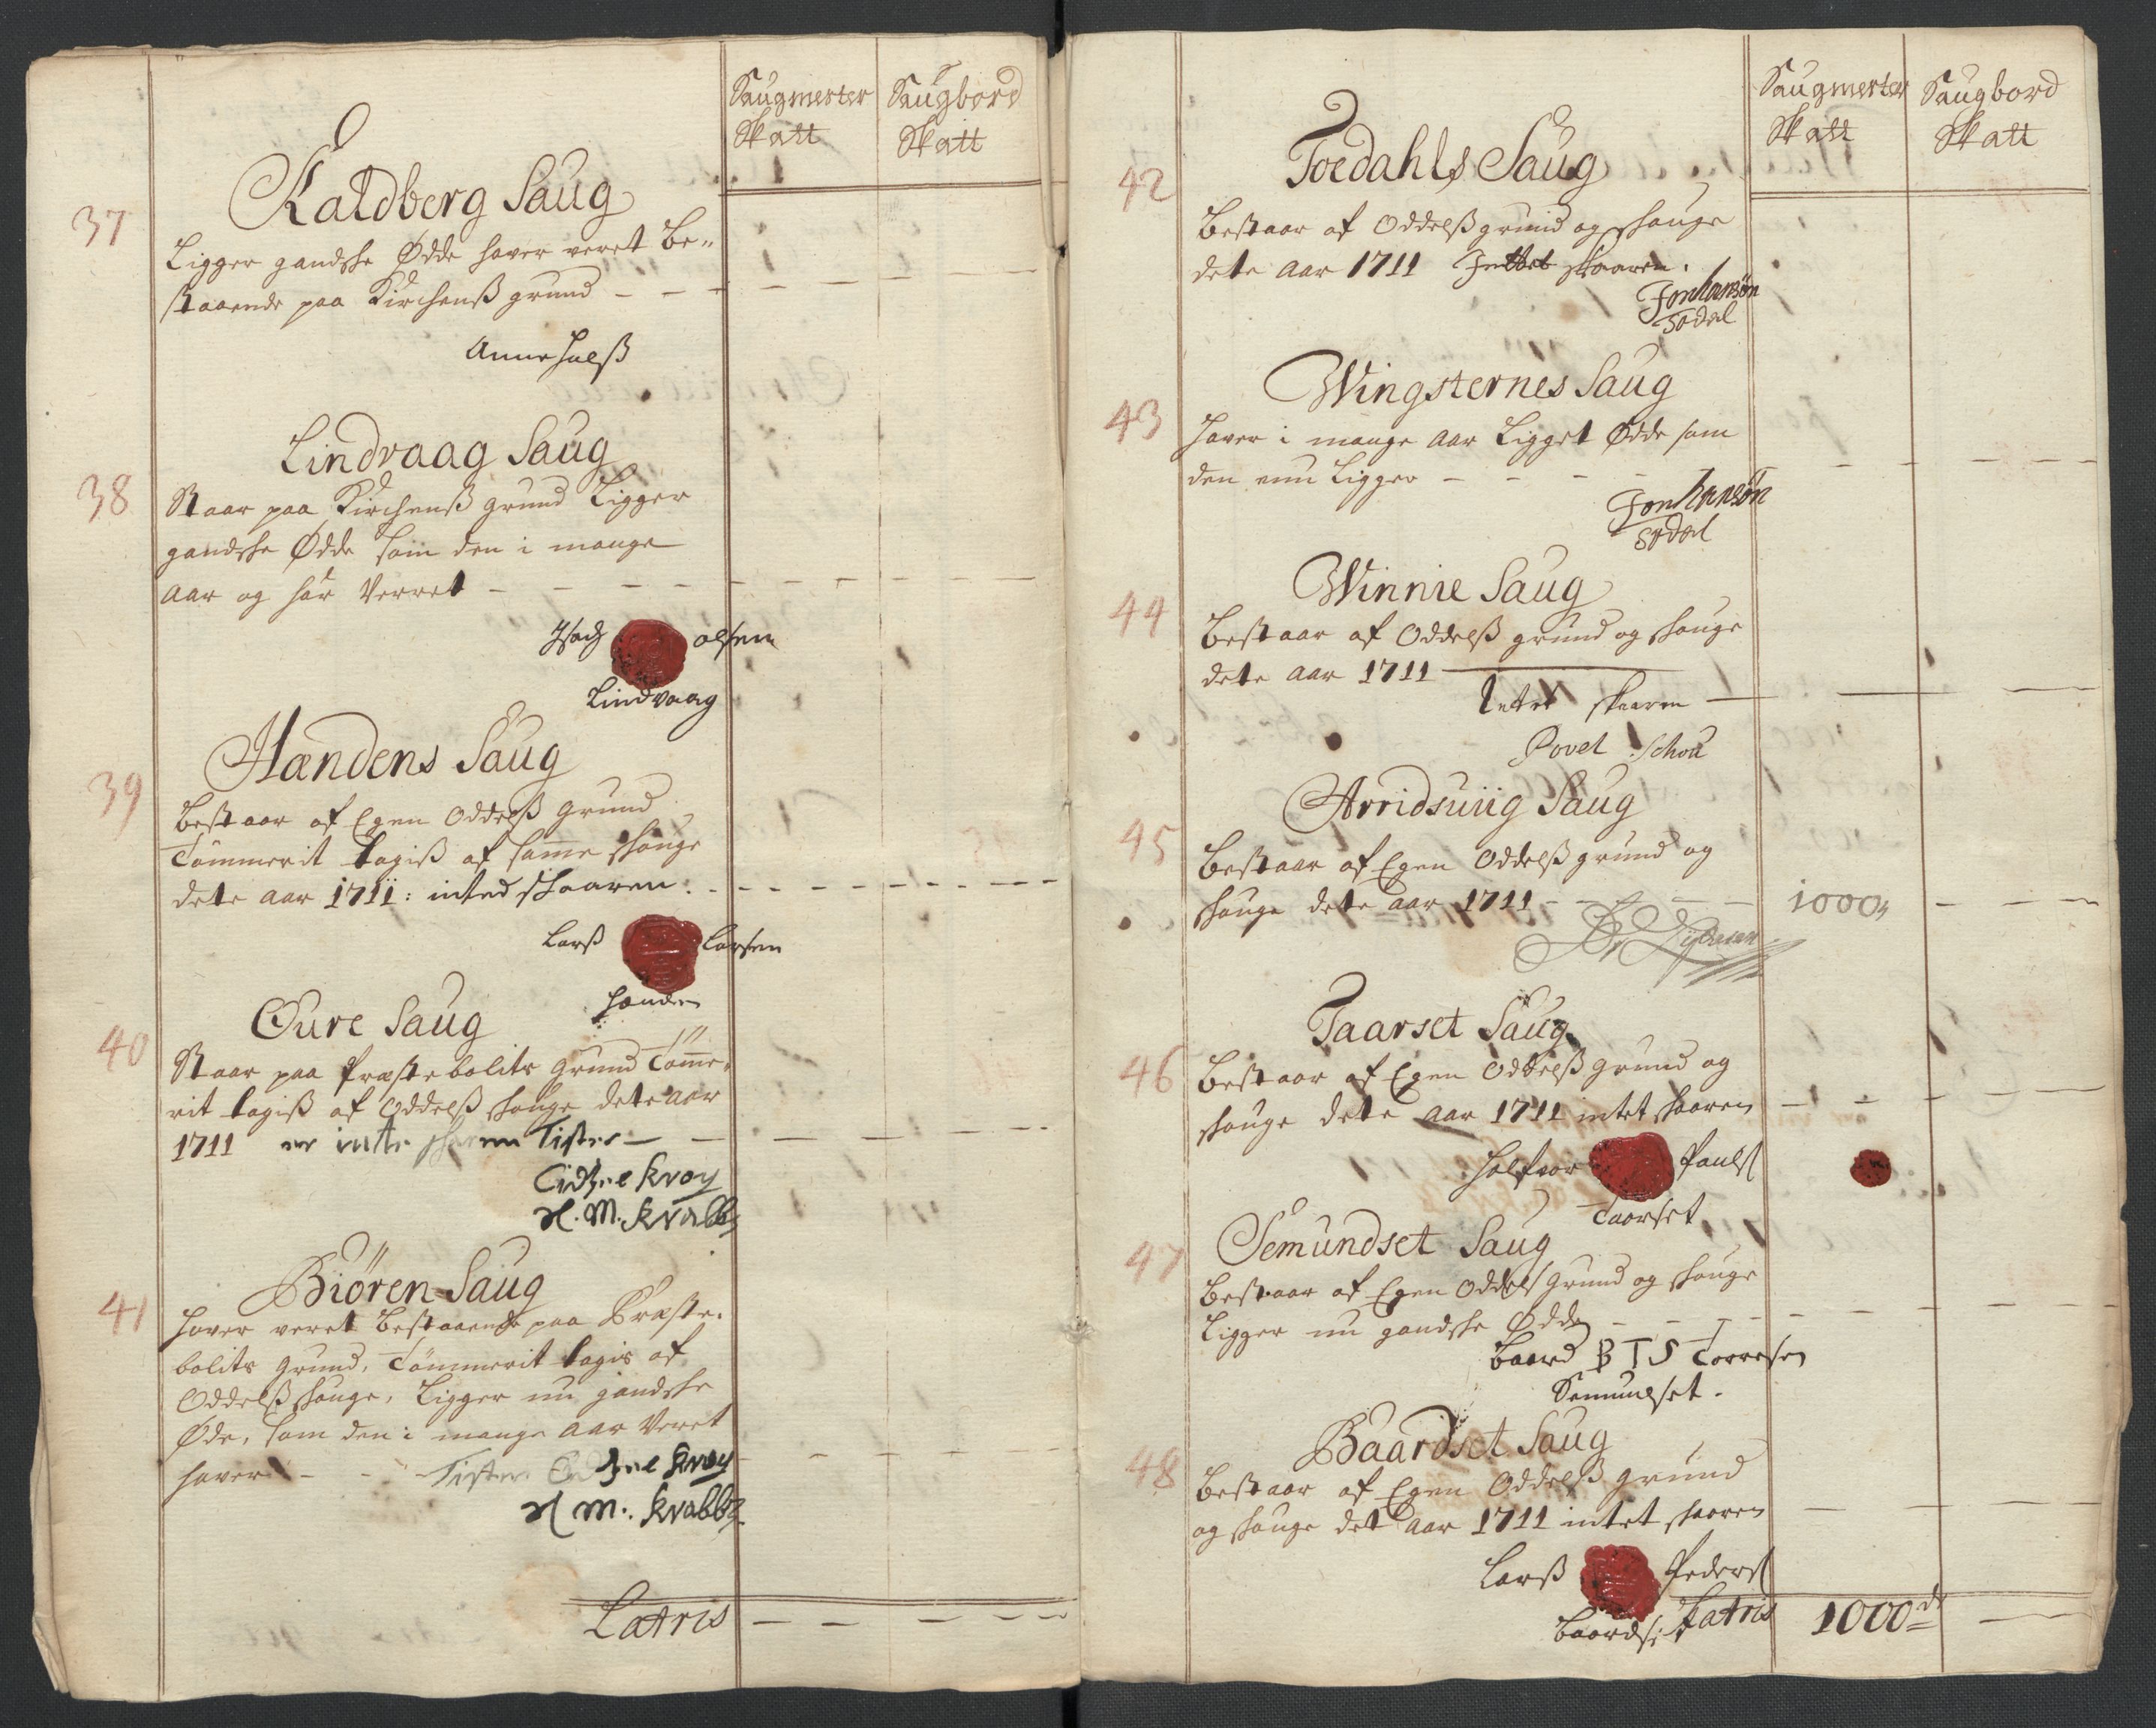 Saugmester Saugbord
Skatt Skatt
37
Kaldberg Saug
Ligger gandske Ødde haver veret be„
staaende paa Kirchenß grund — — — — —
Anne halß
38
Lindvaag Saug
Staar paa Kirchenß grund Ligger
gandske Ødde som den i mange
aar og har Verret — — — — — — — —
olsen
Lindvaag
39
Hændens Saug
bestaar af Egen Oddelß grund
Tömmerit tagiß af samme skouge
dete aar 1711: inted skaaren.
Larß Larsen
hænden
40
Øure Saug
Staar paa Præstebolits grund Tömme„
rit tagiß af Oddelß skouge dete aar
1711
H. M. Krabbe
41
Biören Saug
haver veret bestaaende paa Præste„
bolits grund, Tömmerit tagis af
Oddelß skouge, Ligger nu gandske
Øde, som den i mange aar Veret
haver — —
H M. Krabbe
Latris — — — — —
Saugmester Saugbord
Skatt Skatt
42
Toedahls Saug
bestaar af Oddelß grund og skouge
dete aar 1711 Inttet skaaren.
Jon hansøn
Todal
43
Wingsternes Saug
haver i mange aar Ligget Ødde som
den nu Ligger — — — — — — — —
Jon hansøn
Todal
44
Winnie Saug
bestaar af Oddelß grund og skouge
dete aar 1711
Intet skaaren —
Povel Schou
45
Arridsuiig Saug
bestaar af Egen Oddelß grund og
skouge dete aar 1711 — — — — 1000
46
Taarset Saug
bestaar af Egen Oddelß grund og
skouge dete aar 1711 intet skaaren — — — — —
Halfvor Paulß
Taarset
47
Semundset Saug
bestaar af Egen Oddelß grund og skouge
Ligger nu gandske Ødde — — — — —
baard B T S Torresen
Semundset.
48
Baardset Saug
bestaar af Egen Oddelß grund
og skouge det aar 1711 intet skaaren
Larß Pederß
baards:
Latris 1000 —